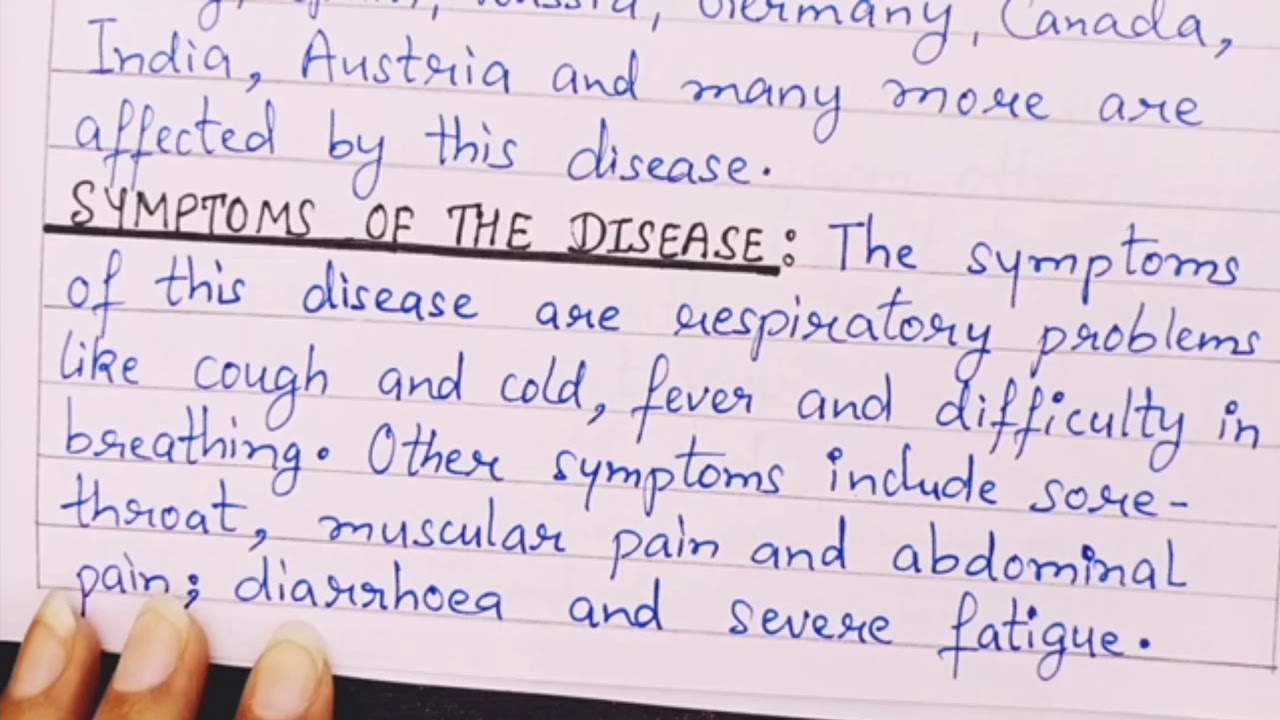 Germany, Canada,
India, Austria and many more are
affected by this disease.
SYMPTOMS OF THE DISEASE: The symptoms
of this disease are respiratory problems
like cough and cold, fever and difficulty in
breathing. Other symptoms include sore-
throat, muscular pain and abdominal
pain; diarrhoea and severe fatigue.